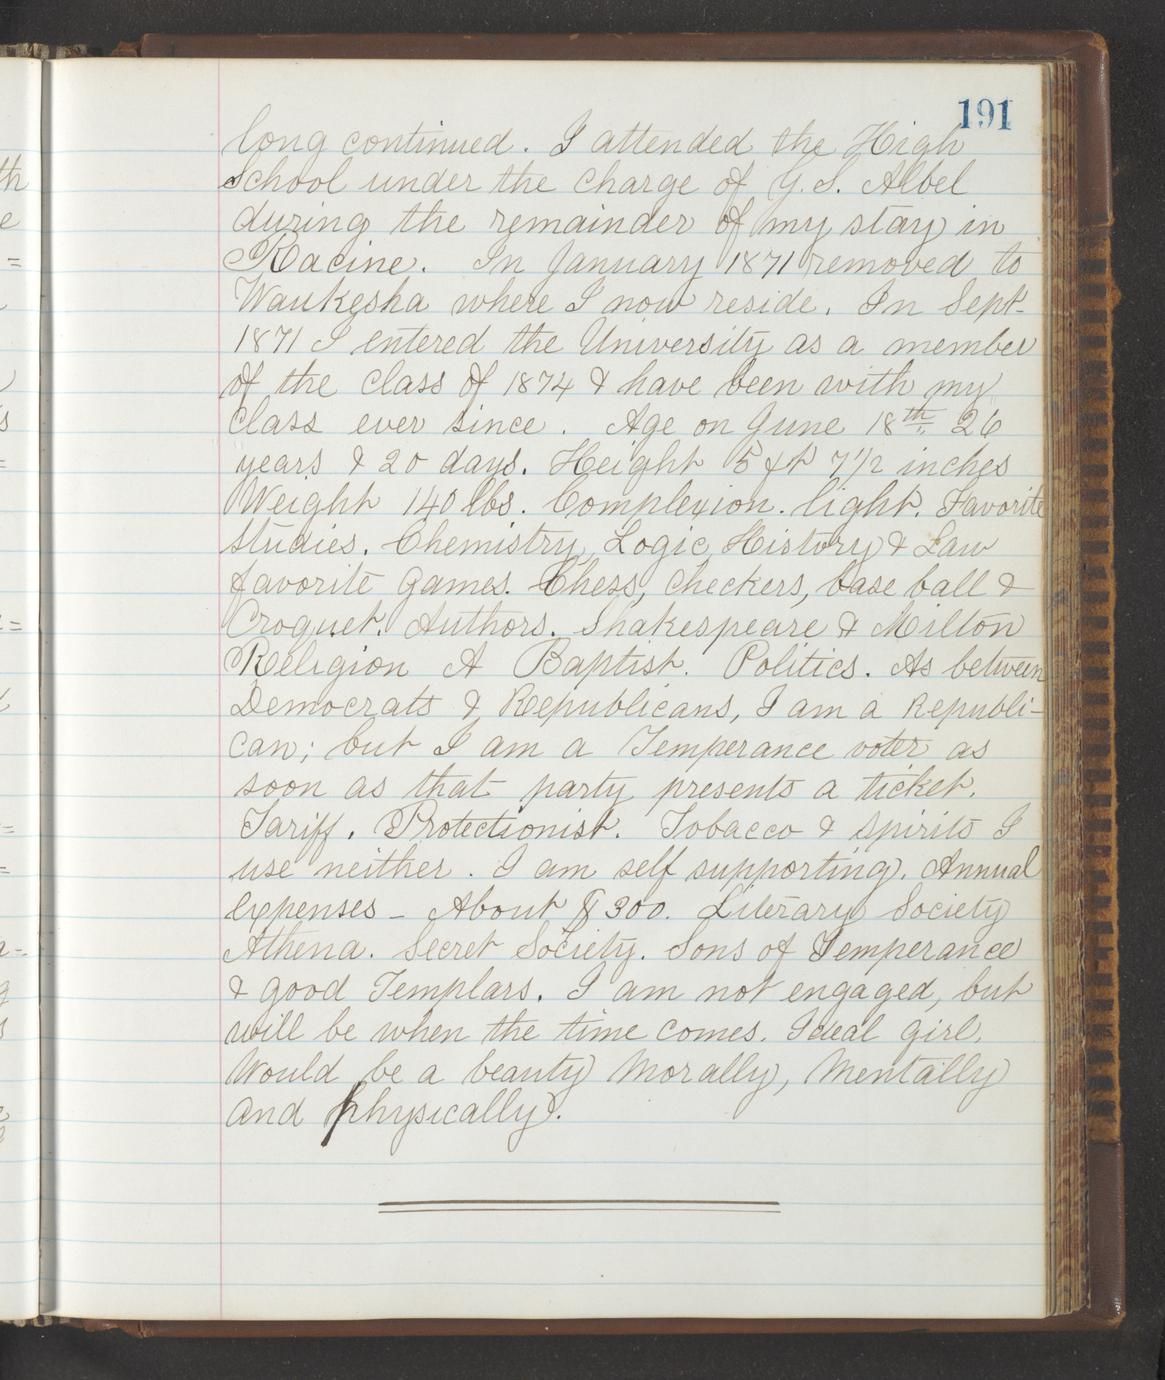 191
long continued. I attended the High
School under the charge of G.S. Albel
during the remainder of my stay in
Racine. In January 1871 removed to
Waukesha where I now reside. In Sept-
1871 I entered the University as a member
of the class of 1874 & have been with my
class ever since. Age on June 18th. 26
years & 20 days. Height 5 ft 7 1/2 inches
Weight 140 lbs. Complexion. light. Favorite
studies. Chemistry, Logic, History & Law
favorite games. Chess, checkers, base ball &
Croquet. Authors. Shakespeare & Milton
Religion A Baptist. Politics. As between
Democrats & Republicans, I am a Republi-
can; but I am a Temperance voter as
soon as that party presents a ticket.
Tariff. Protectionist. Tobacco & spirits I
use neither. I am self supporting. Annual
expenses - About $300. Literary Society
Athena. Secret Society. Sons of Temperance
& good Templars. I am not engaged, but
will be when the time comes. Ideal girl.
Would be a beauty Morally, Mentally
and physically.